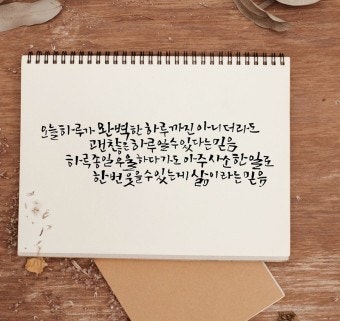 오늘하루가 완벽한 하루까진 아니더라도
괜찮은 하루일 수 있다는 믿음
하루종일 우울하다가도 아주 사소한 일로
한번 웃을 수 있는게 삶이라는 믿음